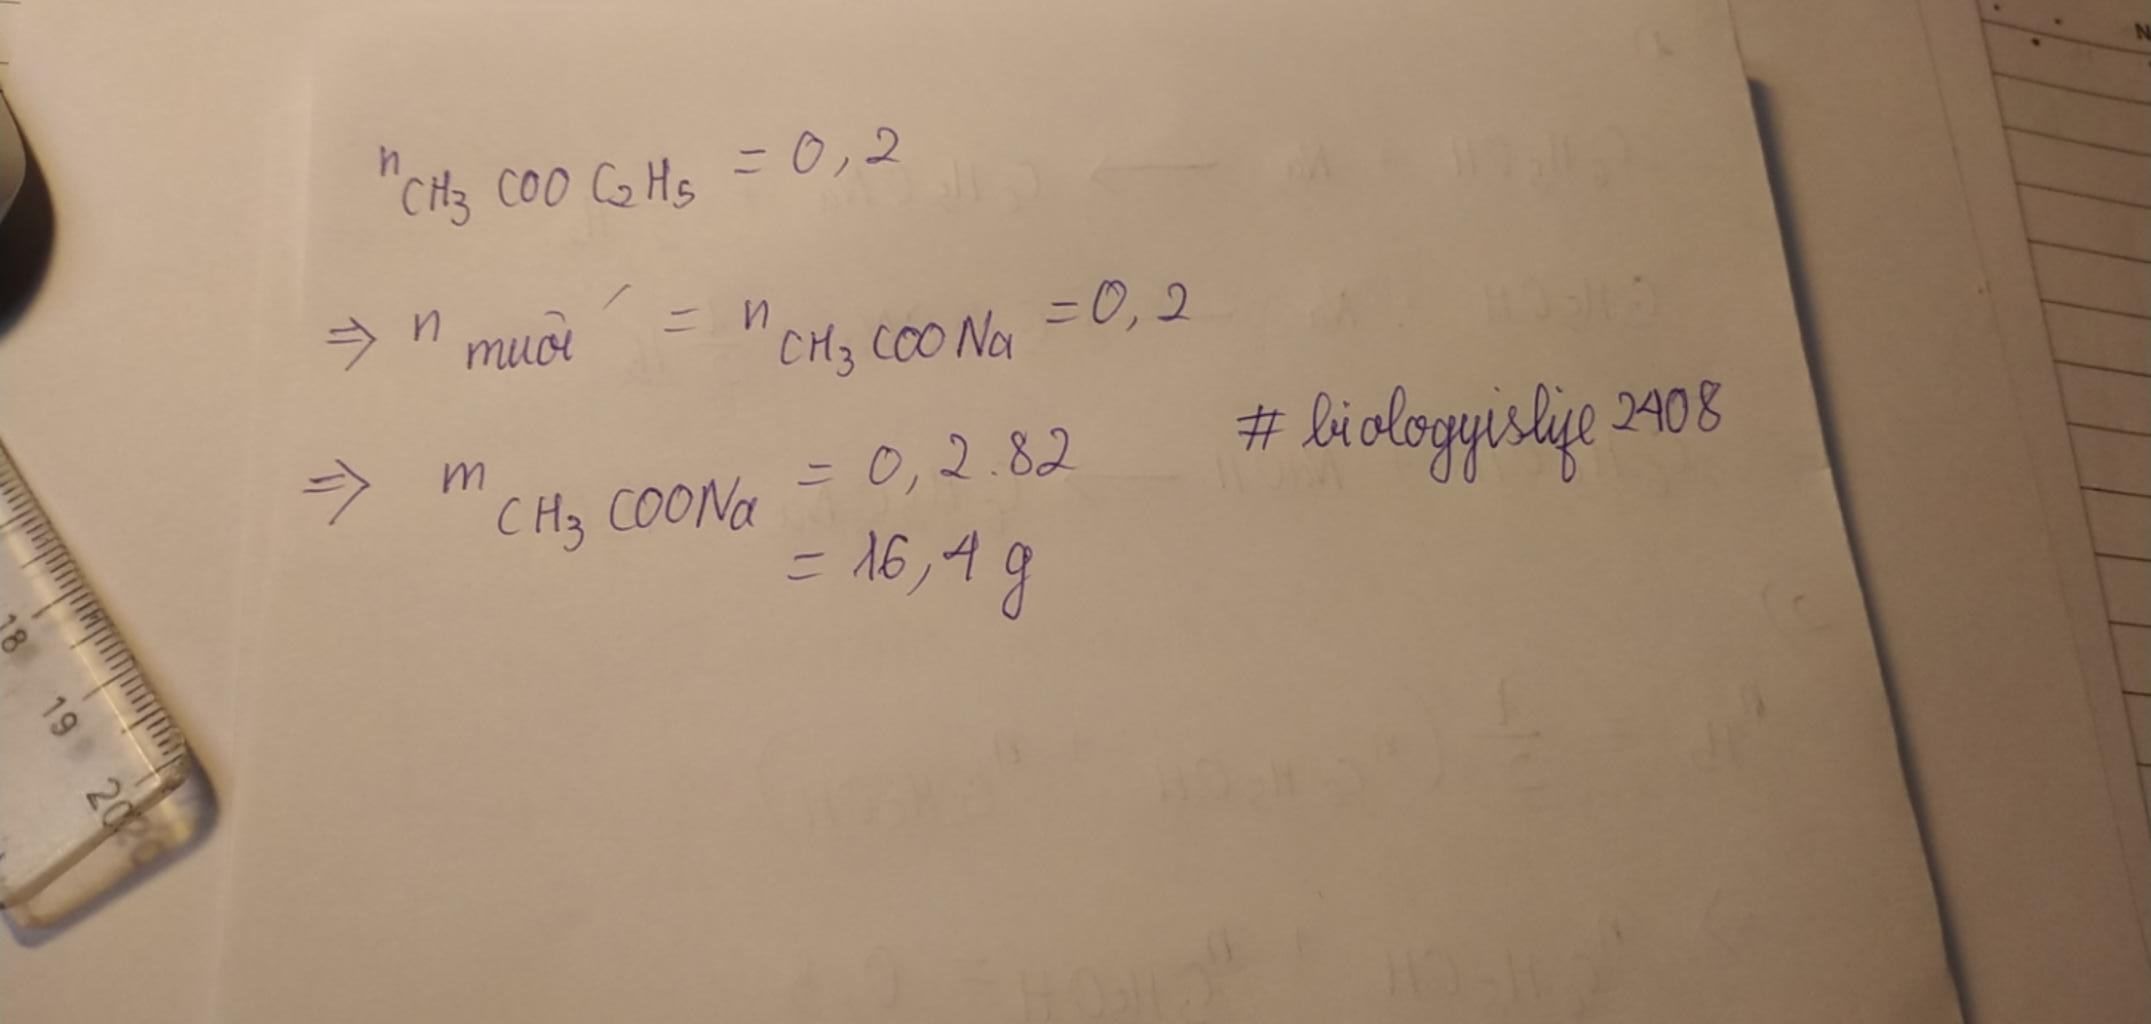 nCH3COOC2H5 = 0,2
⇒ n muối = nCH3COONa = 0,2
⇒ mCH3COONa = 0,2.82
= 16,4 g
# biologyislife2408
18
19
20